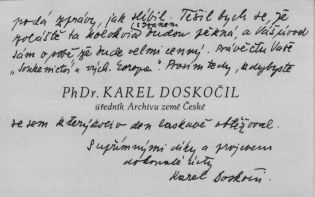 podá zprávy, jak slíbil. Těšil bych se, že
zvláště ta kolokvia budou pěkná, a Váš úvod
sám o sobě, že bude velmi cenný. Právě čtu Vaše
Prosím tedy, kdybyste
PhDr. KAREL DOSKOČIL
úředník Archivu země České
se sem kterýkoliv den laskavě obtěžoval.
S upřímnými díky a projevem
dokonalé úcty
Karel Doskočil